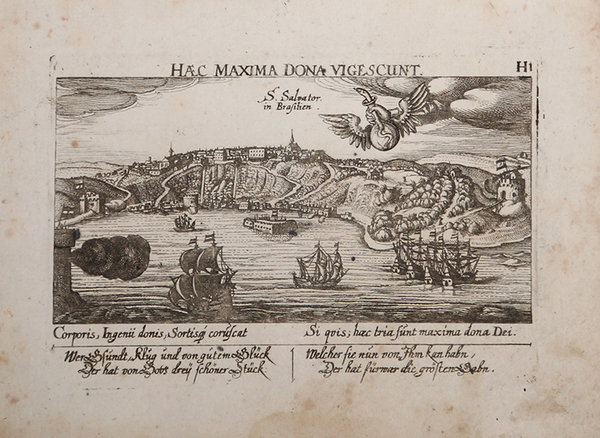 HÆC MAXIMA DONA VIGESCUNT.
H1
S. Salvator.
in Brasilien.
Corporis, Ingenii donis, Sortisq̃ coruscat
Si qvis; hæc tria sunt maxima dona Dei.
Wer Gsundt, Klug und von gutem Glück
Der hat von Gott drey schöner Stück.
Welcher sie nun von Ihm kan habn,
Der hat fürwar die grösten Gabn.